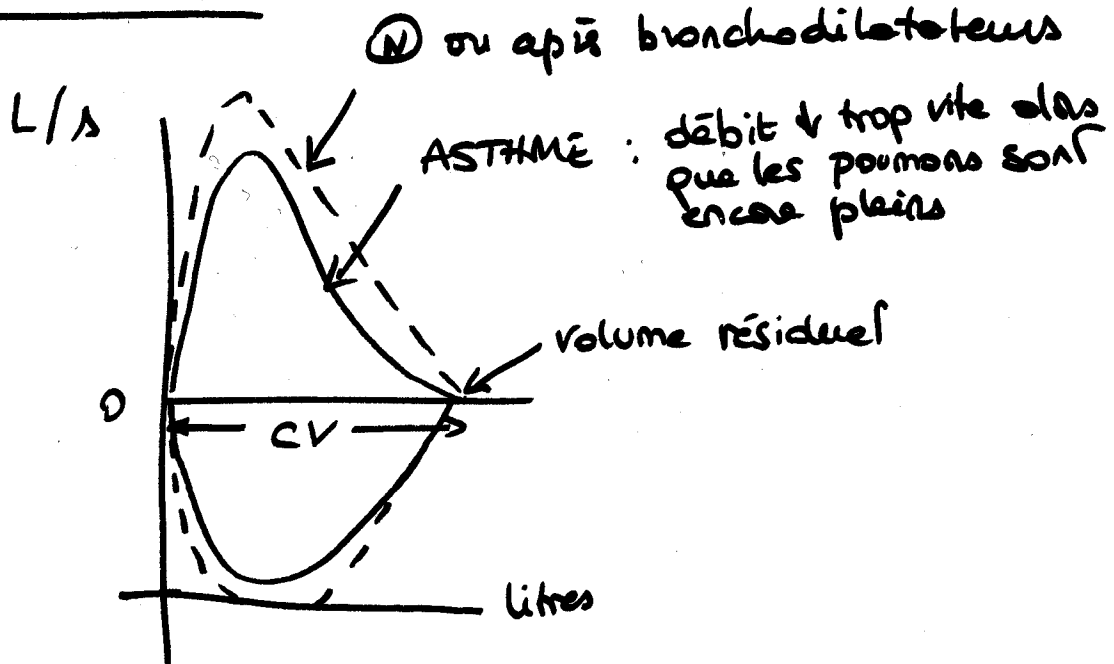 Ⓝ ou après bronchodilatateurs
L/s
ASTHME : débit ↓ trop vite alors
que les poumons sont
encore pleins
volume résiduel
0
CV
litres